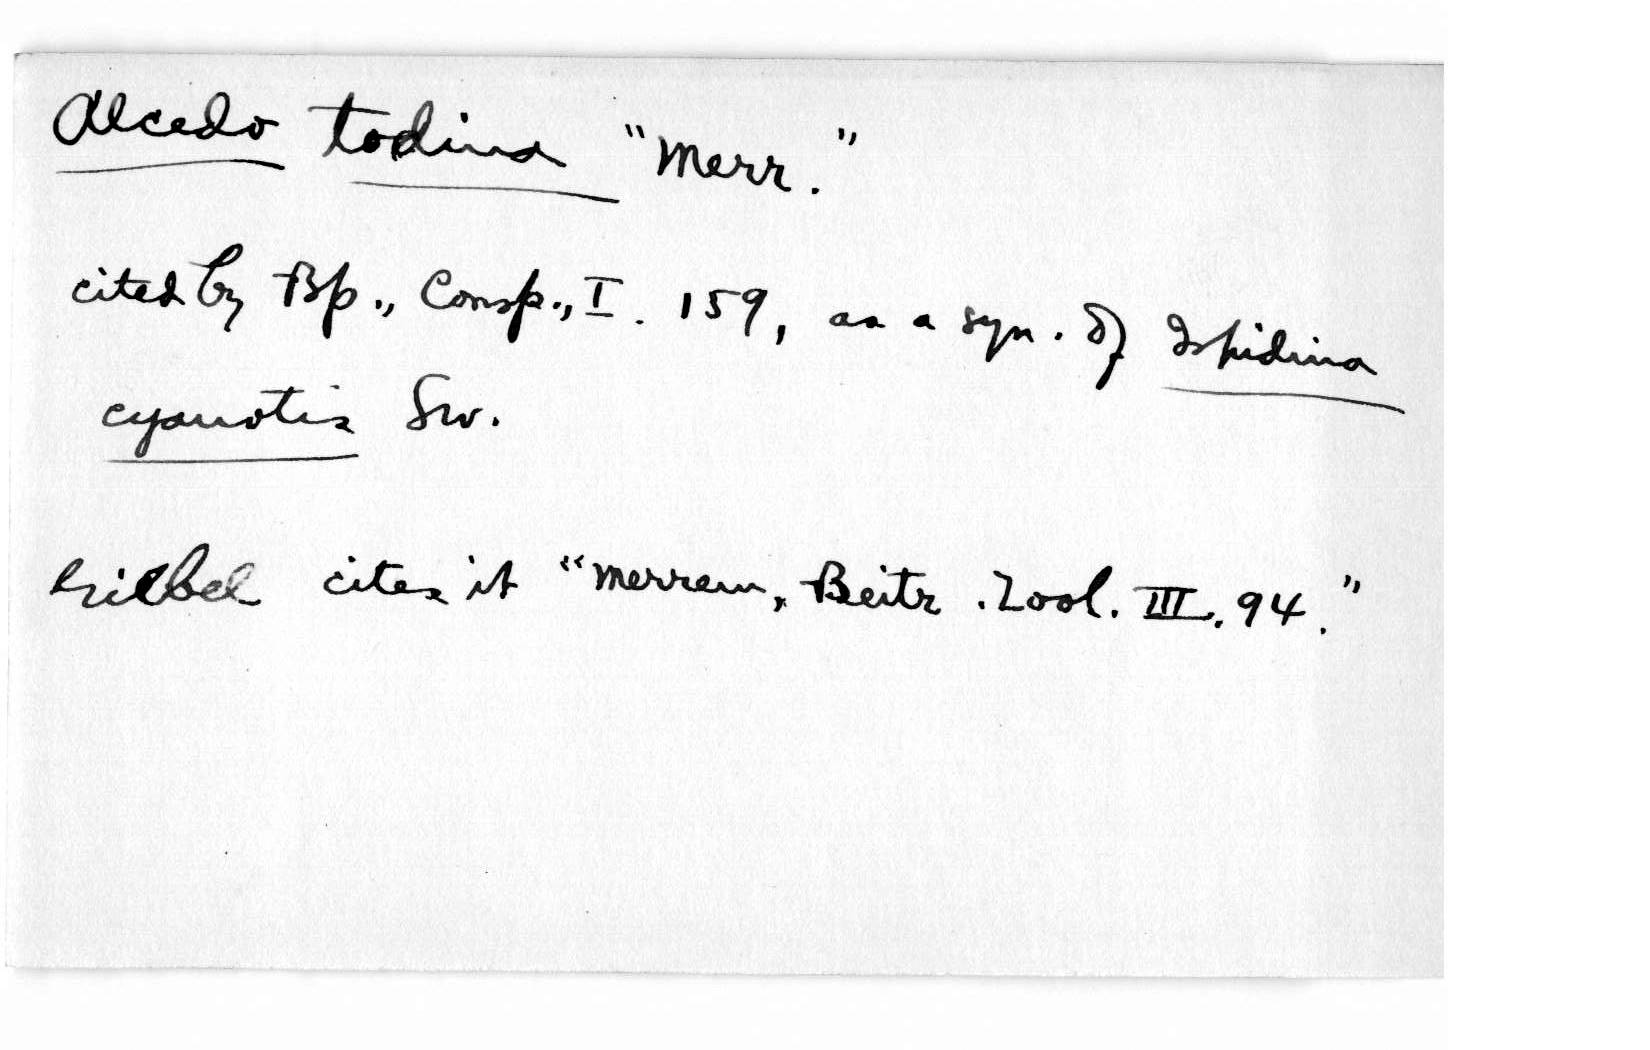 Alcedo todina "Merr."
cited by Bp., Consp., I. 159, as a syn. of Ispidina
cyanotis Sw.
Giebel cites it "Merrem, Beitr. Zool. III. 94."